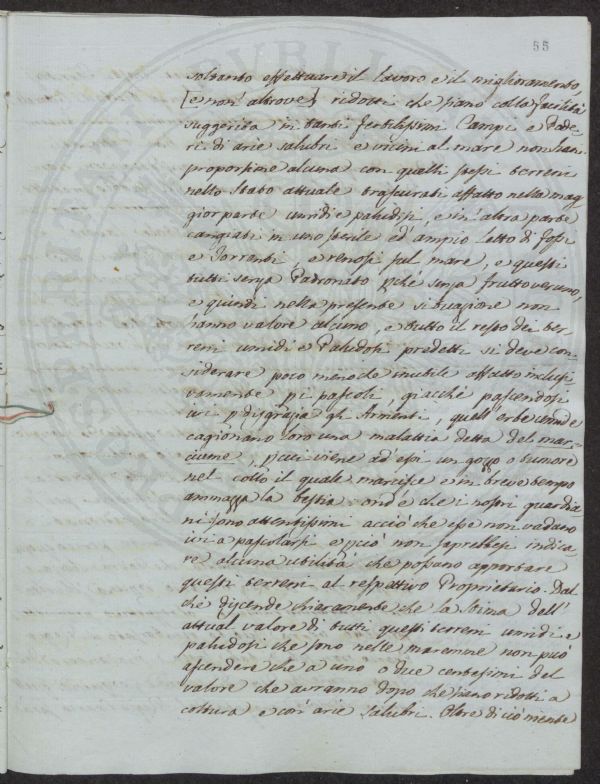 55
soltanto effettuare il lavoro e il miglioramento
[e non altrove] ridotti che siano colla facilità
suggerita in tanti fertilissimi Campi e Pode-
ri di arie salubri e vicini al mare non han
proporzione alcuna con quelli stessi terreni
nello Stato attuale trascurati affatto nella mag
gior parte umidi e paludosi, e in altra parte
cangiati in uno sterile ed ampio letto di fossi
e Torrenti, e renosi sul mare, e questi
tutti senza Padronato, pchè senza frutto veruno,
e quindi nella presente situazione non
hanno valore alcuno, e tutto il resto dei ter-
reni umidi e Paludosi predetti si deve con-
siderare poco meno che inutile affatto inclusi
vamente pi pascoli, giacchè pascendosi
ivi p disgrazia gli Armenti, quell'erbe umide
cagionano loro una malattia detta del mar-
ciume, p cui viene ad essi un gozzo o tumore
nel collo il quale marcisce e in breve tempo
ammazza la bestia: ond'è che i nostri guardia-
ni sono attentissimi acciò che esse non vadano
ivi a pascolarsi e pciò non saprebbesi indica-
re alcuna utilità che possano apportare
questi terreni al respettivo Proprietario. Dal
chè discende chiaramente che la stima dell'
attual valore di tutti questi terreni umidi e
paludosi che sono nelle maremme non può
ascendere che a uno o due centesimi del
valore che avranno dopo che siano ridotti a
coltura e con arie salubri. Oltre di ciò niente